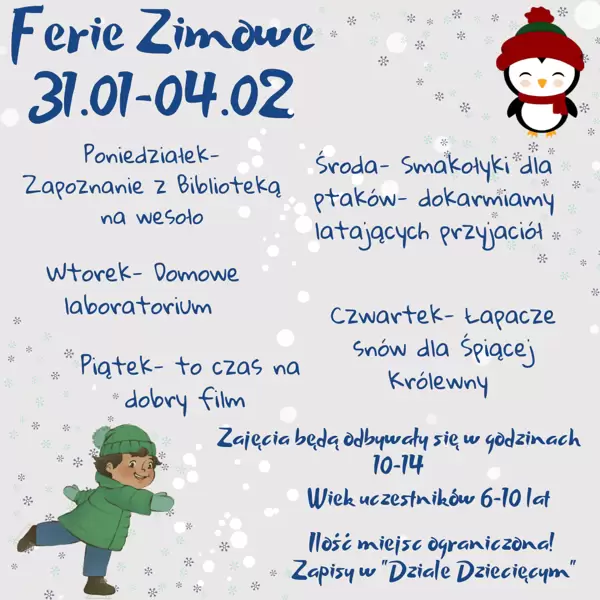 Ferie Zimowe
31.01-04.02
Poniedziałek-
Zapoznanie z Biblioteką
na wesoło
Wtorek- Domowe
laboratorium
Środa- Smakołyki dla
ptaków- dokarmiamy
latających przyjaciół
Czwartek- Łapacze
snów dla Śpiącej
Królewny
Piątek- to czas na
dobry film
Zajęcia będą odbywały się w godzinach
10-14
Wiek uczestników 6-10 lat
Ilość miejsc ograniczona!
Zapisy w "Dziale Dziecięcym"